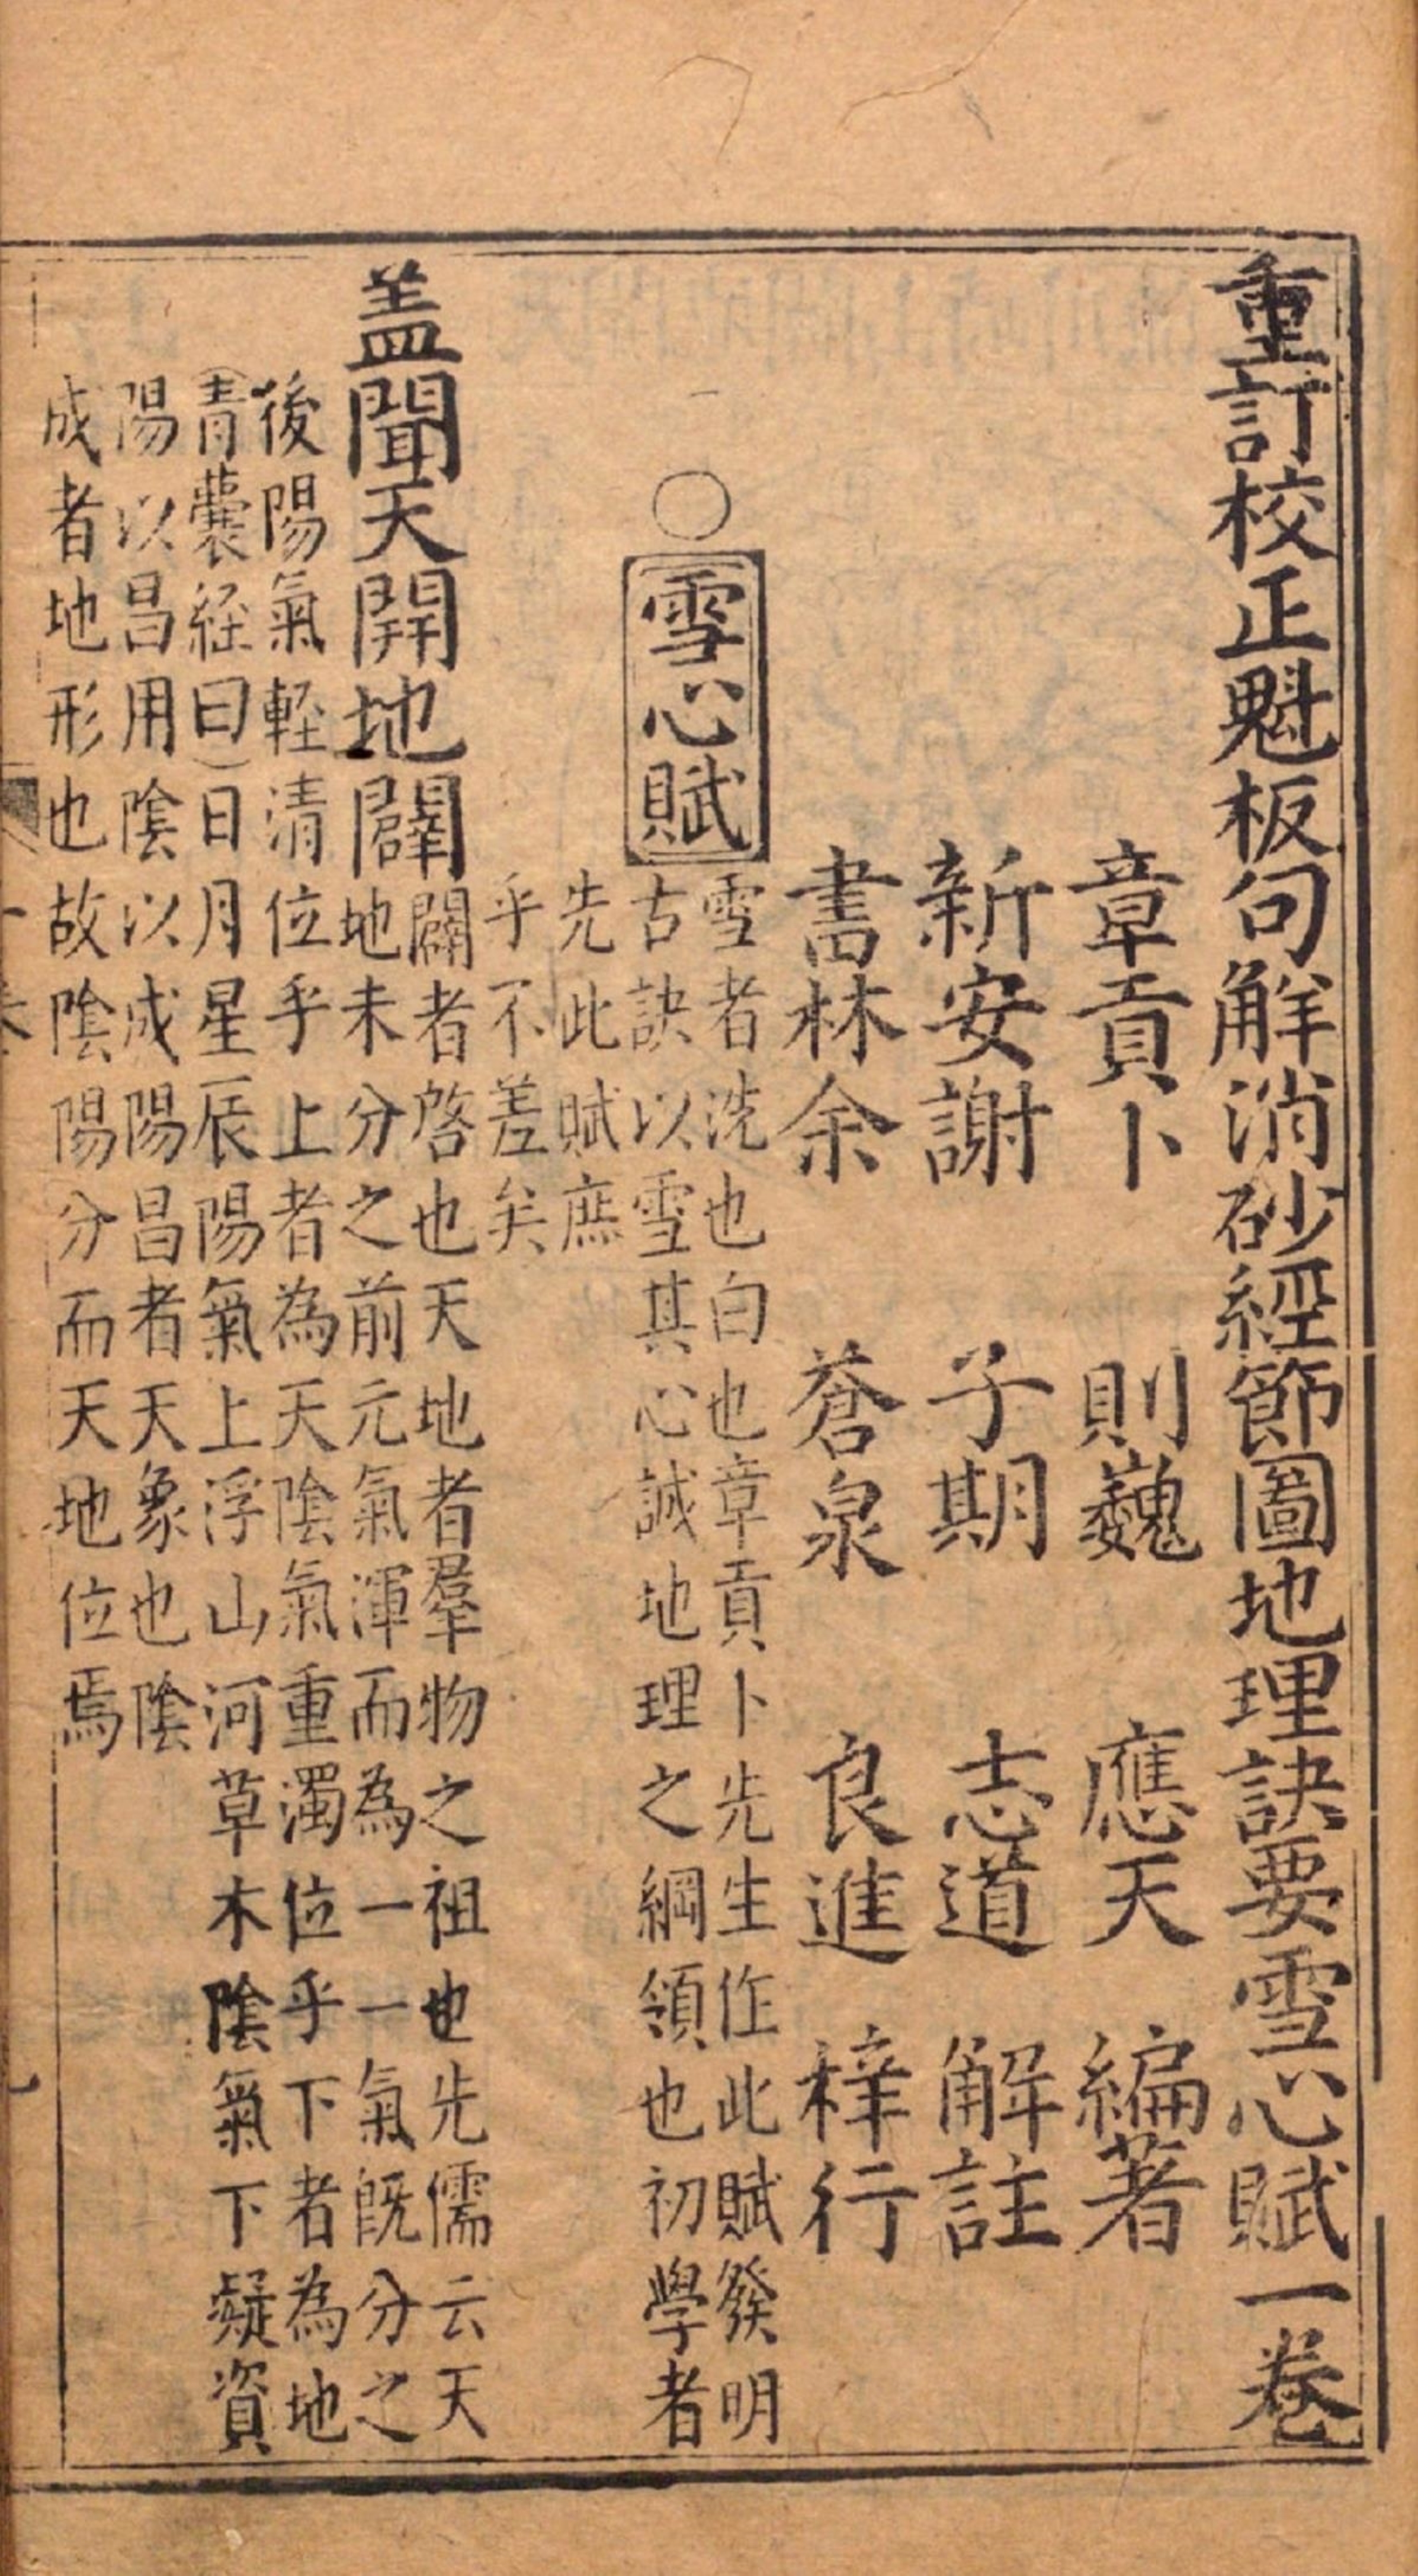 重訂校正魁板句解消砂經節圖地理訣要雪心賦一卷
章貢卜 則巍 應天 編著
新安謝 子期 志道 解註
書林余 蒼泉 良進 梓行
○雪心賦
雪者洗也白也章貢卜先生作此賦發明
古訣以雪其心誠地理之綱領也初學者
先此賦庶
乎不差矣
盖聞天開地闢
闢者啓也天地者羣物之祖也先儒云天
地未分之前元氣渾而為一一氣既分之
後陽氣輊清位乎上者為天陰氣重濁位乎下者為地
(青囊経曰)日月星辰陽氣上浮山河草木陰氣下凝資
陽以昌用陰以成陽昌者天象也陰
成者地形也故陰陽分而天地位焉